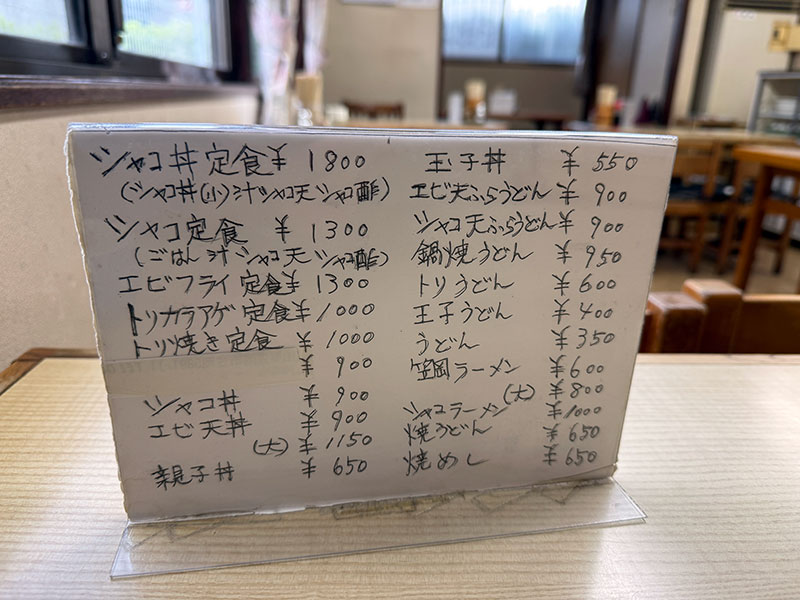 シャコ丼定食 ¥1800
(シャコ丼(小)汁シャコ天シャコ酢)
シャコ定食 ¥1300
(ごはん汁シャコ天シャコ酢)
エビフライ定食 ¥1300
トリカラアゲ定食 ¥1000
トリ焼き定食 ¥1000
¥900
シャコ丼 ¥900
エビ天丼 ¥900
(大) ¥1150
親子丼 ¥650
玉子丼 ¥550
エビ天ぷらうどん ¥900
シャコ天ぷらうどん ¥900
鍋焼うどん ¥950
トリうどん ¥600
玉子うどん ¥400
うどん ¥350
笠岡ラーメン ¥600
(大) ¥800
シャコラーメン ¥1000
焼うどん ¥650
焼めし ¥650